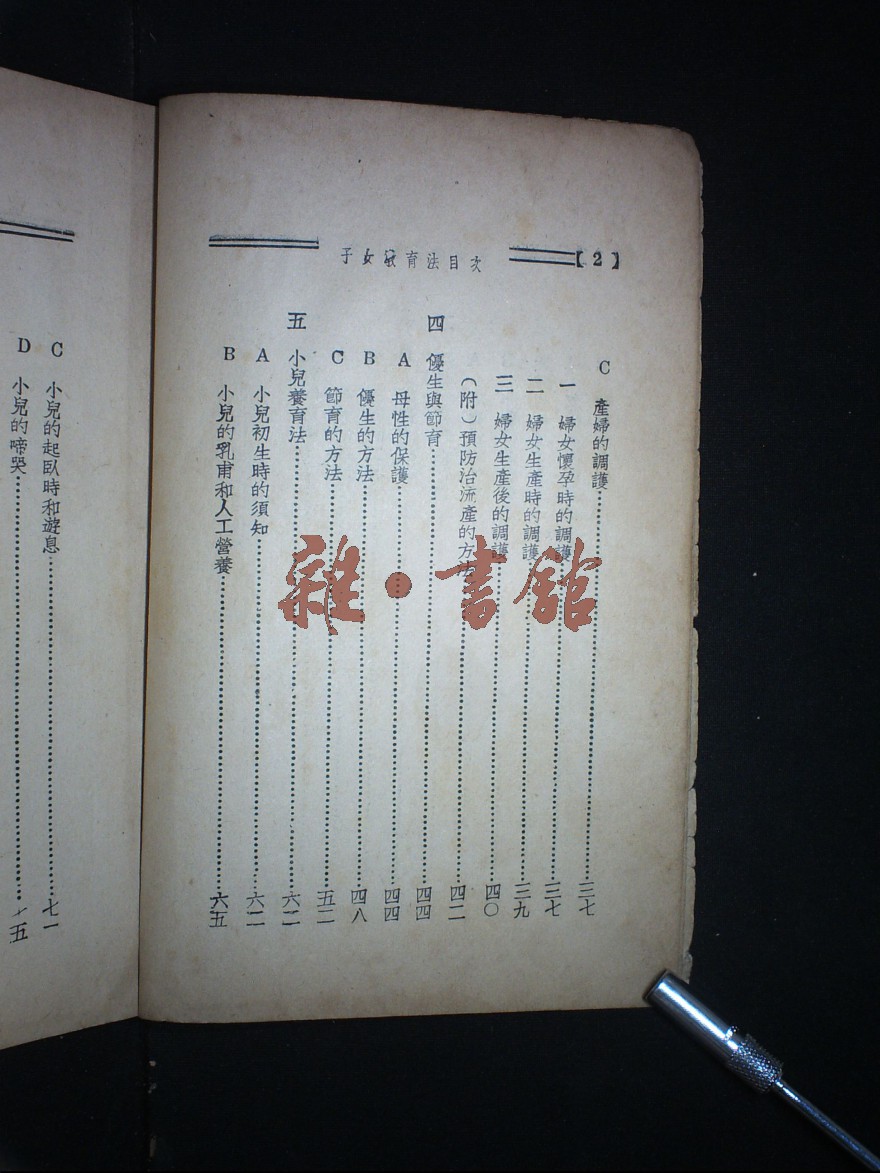 子女教育法目次
【2】
C 產婦的調護 三七
一 婦女懷孕時的調護 三七
二 婦女生產時的調護 三九
三 婦女生產後的調護 四〇
（附）預防治流產的方法 四二
四 優生與節育 四四
A 母性的保護 四四
B 優生的方法 四八
C 節育的方法 五二
五 小兒養育法 六二
A 小兒初生時的須知 六二
B 小兒的乳甫和人工營養 六五
C 小兒的起臥時和遊息 七一
D 小兒的啼哭 五
雜·書館